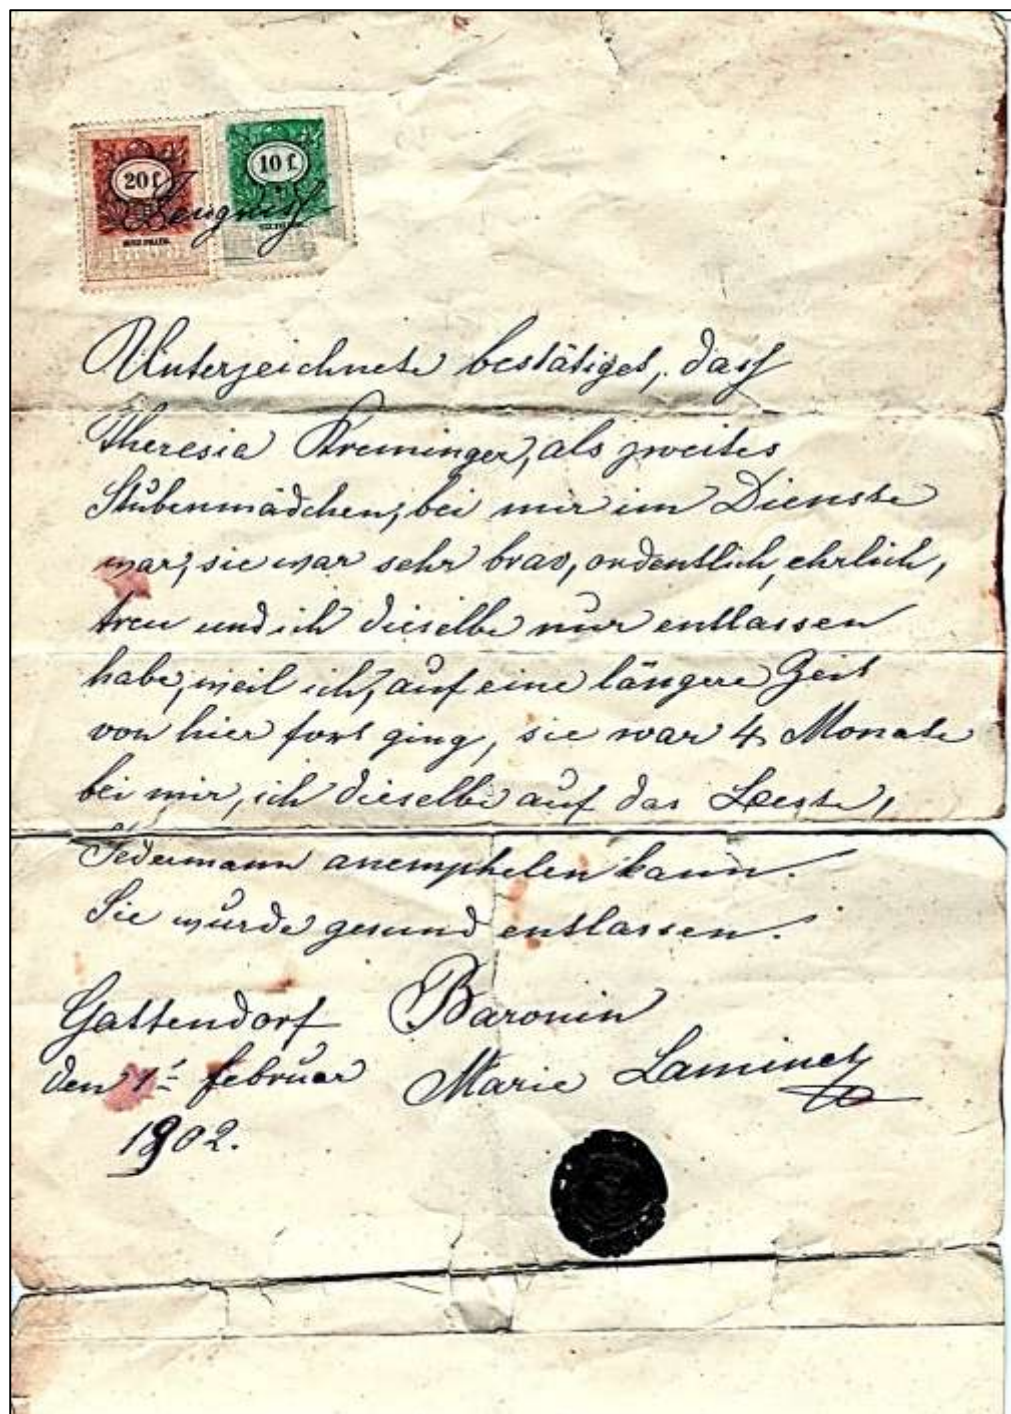 20 f
10 f.
Zeugniss
HUSZ FILLÉR.
TIZ FILLÉR.
Unterzeichnete bestätiget, dass
Theresia Kreminger, als zweites
Stubenmädchen, bei mir im Dienste
war, sie war sehr brav, ordentlich, ehrlich,
treu und ich dieselbe nur entlassen
habe, weil ich, auf eine längere Zeit
von hier fort ging, sie war 4 Monate
bei mir, ich dieselbe auf das Beste,
Jedermann anemphelen kann.
Sie wurde gesund entlassen.
Gattendorf Baronin
den 1t februar Marie Laminet
1902.